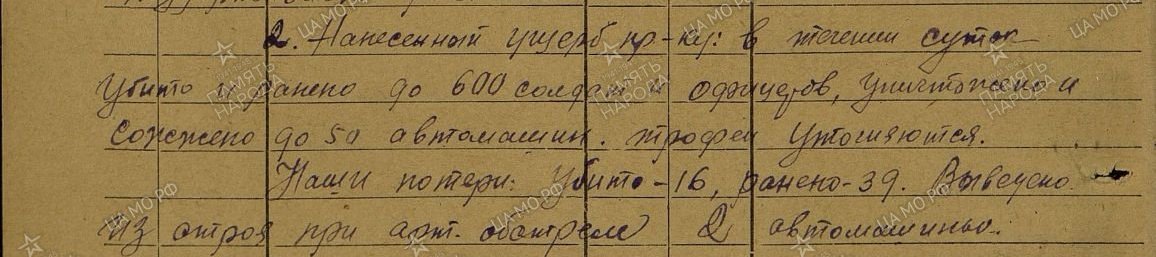 2. Нанесенный ущерб пр-ку: в течении суток
убито и ранено до 600 солдат и офицеров, уничтожено и
сожжено до 50 автомашин. трофеи уточняются.
Наши потери: Убито-16, ранено-39. Выведено
из строя при арт. обстреле 2 автомашины.